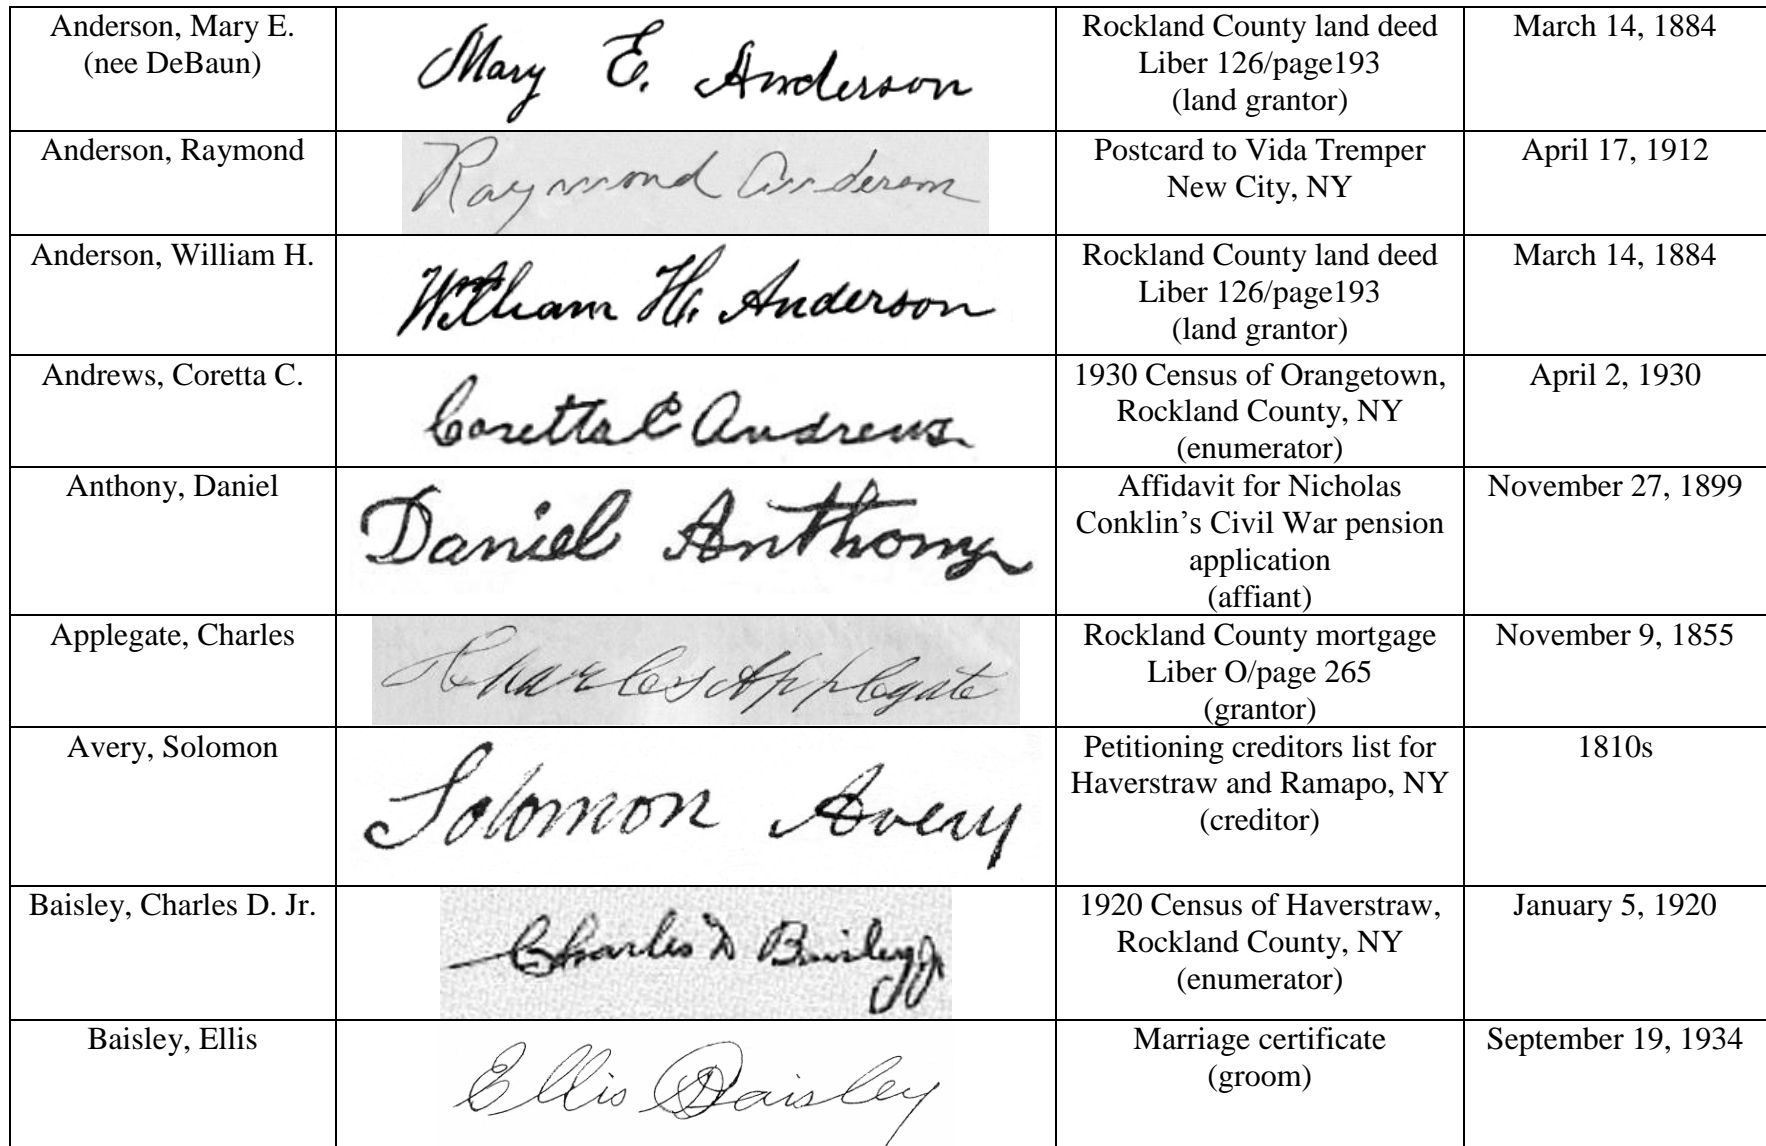 Anderson, Mary E.
(nee DeBaun)
Mary E. Anderson
Rockland County land deed
Liber 126/page193
(land grantor)
March 14, 1884
Anderson, Raymond
Raymond Anderson
Postcard to Vida Tremper
New City, NY
April 17, 1912
Anderson, William H.
William H. Anderson
Rockland County land deed
Liber 126/page193
(land grantor)
March 14, 1884
Andrews, Coretta C.
Coretta C Andrews
1930 Census of Orangetown,
Rockland County, NY
(enumerator)
April 2, 1930
Anthony, Daniel
Daniel Anthony
Affidavit for Nicholas
Conklin’s Civil War pension
application
(affiant)
November 27, 1899
Applegate, Charles
Charles Applegate
Rockland County mortgage
Liber O/page 265
(grantor)
November 9, 1855
Avery, Solomon
Solomon Avery
Petitioning creditors list for
Haverstraw and Ramapo, NY
(creditor)
1810s
Baisley, Charles D. Jr.
Charles D Baisley Jr
1920 Census of Haverstraw,
Rockland County, NY
(enumerator)
January 5, 1920
Baisley, Ellis
Ellis Baisley
Marriage certificate
(groom)
September 19, 1934